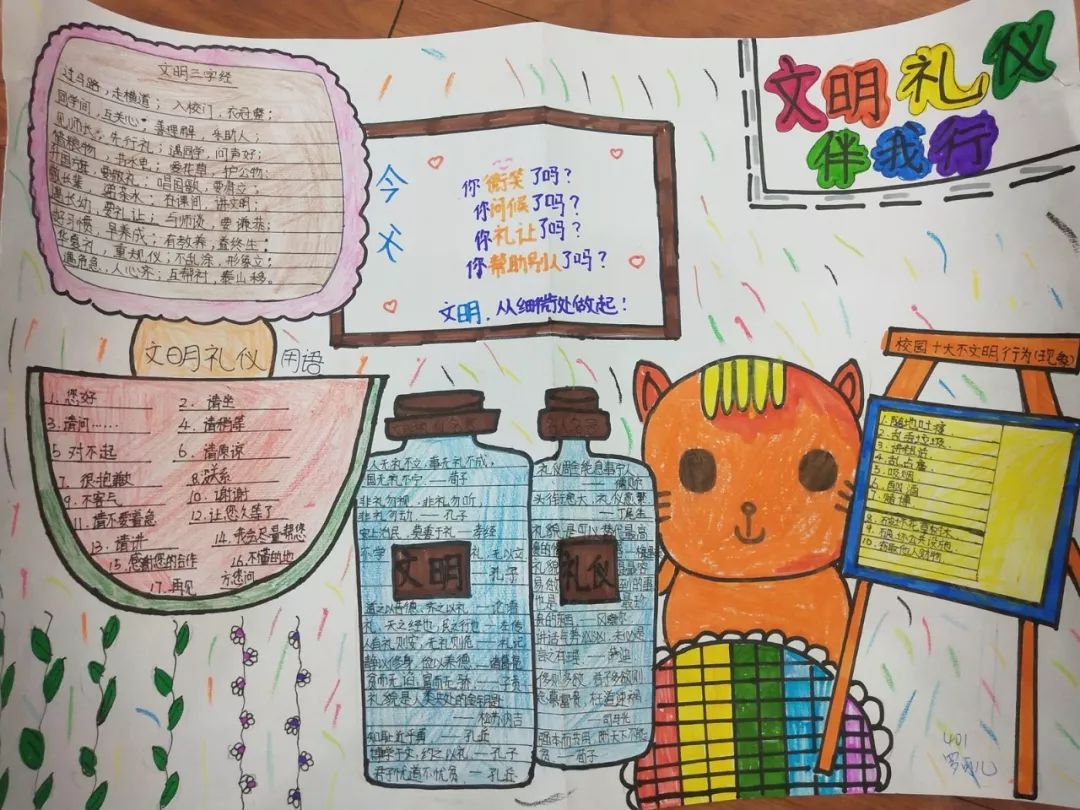 文明三字经
过马路，走横道；入校门，衣冠整；
同学间，互关心；善理解，乐助人；
见师长，先行礼；遇同学，问声好；
惜粮物，节水电；爱花草，护公物；
升国旗，要敬礼；唱国歌，要肃立；
敬长辈，递茶水；在课间，讲文明；
遇老幼，要礼让；与师谈，要谦恭；
好习惯，早养成；有教养，益终生；
华夏礼，重规仪；不乱涂，形象立；
遇危急，人心齐；互帮衬，泰山移。
今天
你微笑了吗？
你问候了吗？
你礼让了吗？
你帮助别人了吗？
文明，从细微处做起！
文明礼仪
伴我行
文明礼仪用语
1. 您好
2. 请坐
3. 请问……
4. 请稍等
5 对不起
6. 请原谅
7. 很抱歉
8. 没关系
9. 不客气
10. 谢谢
11. 请不要着急
12. 让您久等了
13. 请讲
14. 我会尽量帮您
15. 感谢您的合作
16. 不懂的地方您问
17. 再见
人无礼不立，事无礼不成，
国无礼不宁——荀子
非礼勿视，非礼勿听
非礼勿动——孔子
安上治民，莫善于礼——孝经
不学礼，无以立
——孔子
文明
道之以德，齐之以礼——论语
礼，天之经也，民之行也——左传
人有礼则安，无礼则危——礼记
静以修身，俭以养德——诸葛亮
贫而无谄，富而无骄——子贡
礼貌是人类共处的金钥匙
——松苏内吉
知耻近乎勇——孔丘
博学于文，约之以礼——孔子
君子忧道不忧贫——孔丘
礼仪
——司马光
——荀子
校园十大不文明行为(现象)
1. 随地吐痰
2. 乱丢垃圾
3. 讲粗话
4. 乱占座
5. 吸烟
6. 酗酒
7. 赌博
8. 破坏花草树木
9. 损坏公共设施
10. 窃取他人财物
401